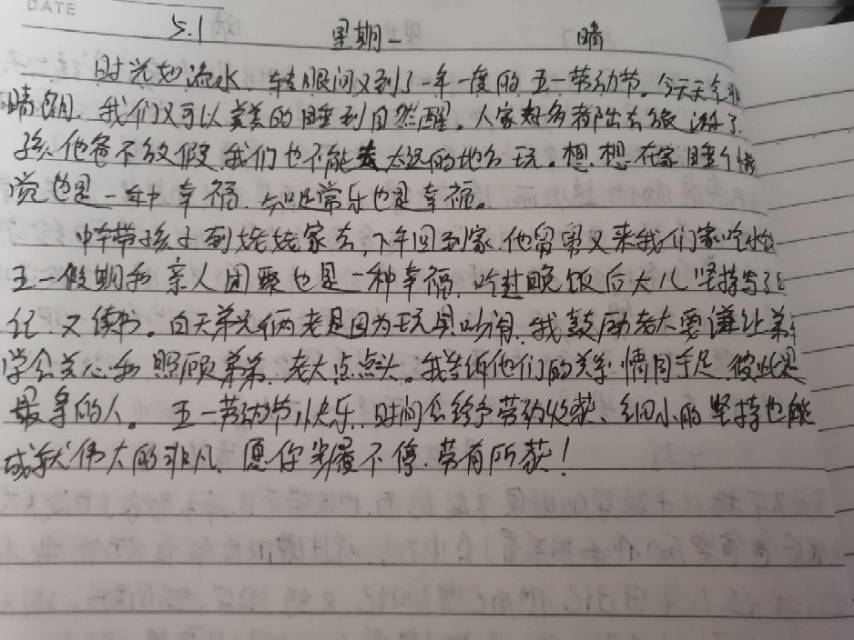 DATE
5.1 星期一 晴
时光如流水，转眼间又到了一年一度的五一劳动节。今天天气非
晴朗，我们又可以美美的睡到自然醒。人家好多都出去旅游了，
孩他爸不放假，我们也不能去太远的地方玩。想想在家睡个懒
觉也是一种幸福，知足常乐也是幸福。
中午带孩子到姥姥家去，下午回到家，他舅舅又来我们家吃饭
五一假期和亲人团聚也是一种幸福，吃过晚饭后大儿坚持写日
记，又读书。白天弟兄俩老是因为玩具吵闹，我鼓励老大要谦让弟弟
学会关心和照顾弟弟，老大点点头。我告诉他们的关系情同手足，彼此是
最亲的人。五一劳动节快乐，时间会给予劳动收获、细小的坚持也能
成就伟大的非凡，愿你步履不停，劳有所获！